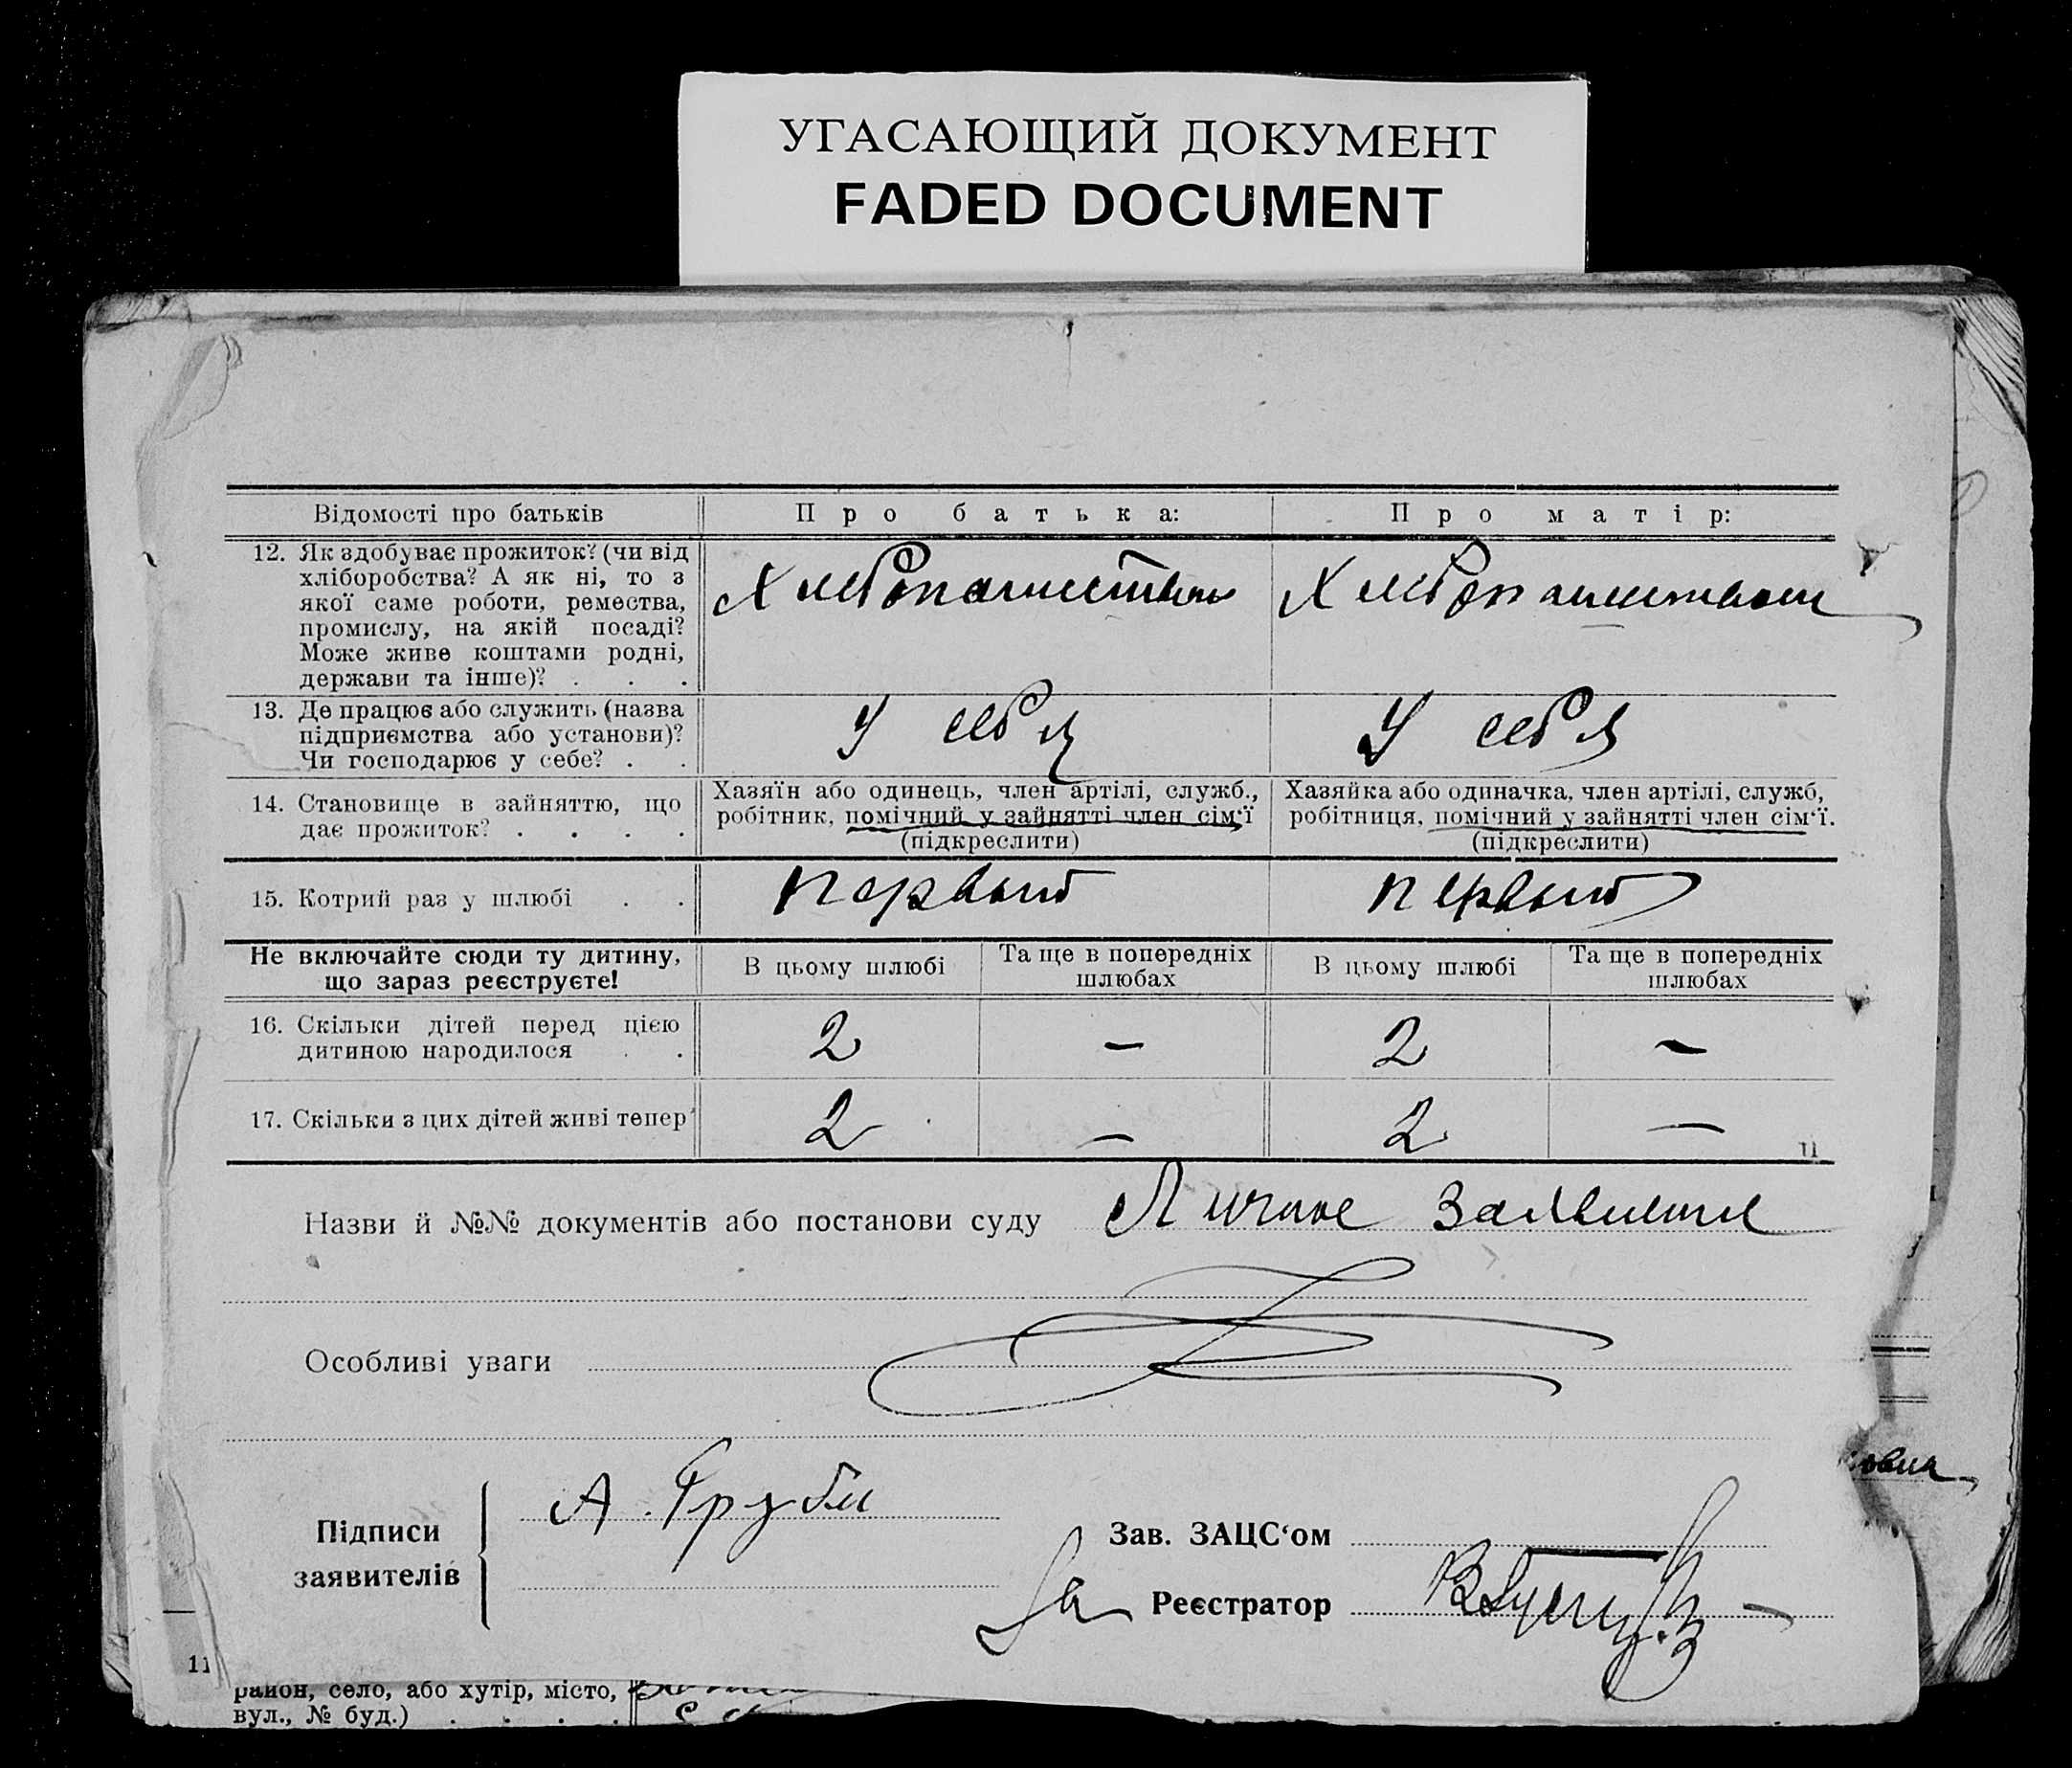 УГАСАЮЩИЙ ДОКУМЕНТ
FADED DOCUMENT
Відомості про батьків
Про батька:
Про матір:
12. Як здобуває прожиток? (чи від
хліборобства? А як ні, то з
якої саме роботи, ремества,
промислу, на якій посаді?
Може живе коштами родні,
держави та інше)? . . .
Хлебопашеством
Хлебопашеством
13. Де працює або служить (назва
підприємства або установи)?
Чи господарює у себе? . .
У себя
У себя
14. Становище в зайняттю, що
дає прожиток? . . . .
Хазяїн або одинець, член артілі, служб.,
робітник, помічний у зайнятті член сім‘ї
(підкреслити)
Хазяйка або одиначка, член артілі, служб,
робітниця, помічний у зайнятті член сім‘ї.
(підкреслити)
15. Котрий раз у шлюбі . .
первый
первый
Не включайте сюди ту дитину,
що зараз реєструєте!
В цьому шлюбі
Та ще в попередніх
шлюбах
В цьому шлюбі
Та ще в попередніх
шлюбах
16. Скільки дітей перед цією
дитиною народилося . .
2 — 2 —
17. Скільки з цих дітей живі тепер
2 — 2 —
Назви й №№ документів або постанови суду Личное заявление
Особливі уваги
Підписи
заявителів
А. Груби
Зав. ЗАЦС‘ом
За Реєстратор
11
район, село, або хутір, місто,
вул., № буд.) . . . .